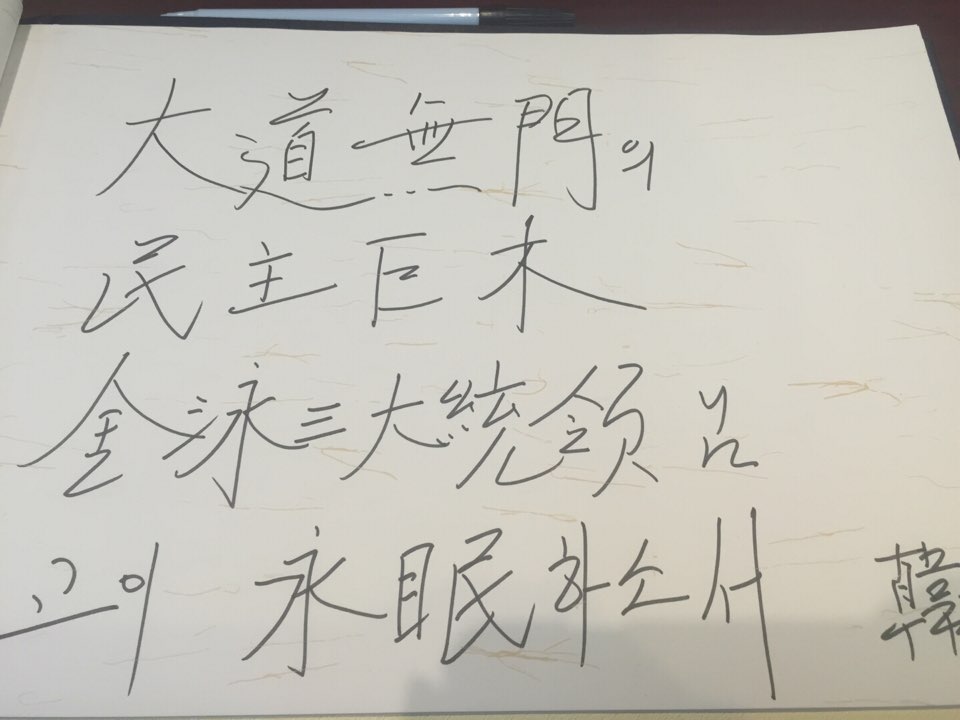 大道無門의
民主巨木
金泳三大統領님
고이 永眠하소서 韓